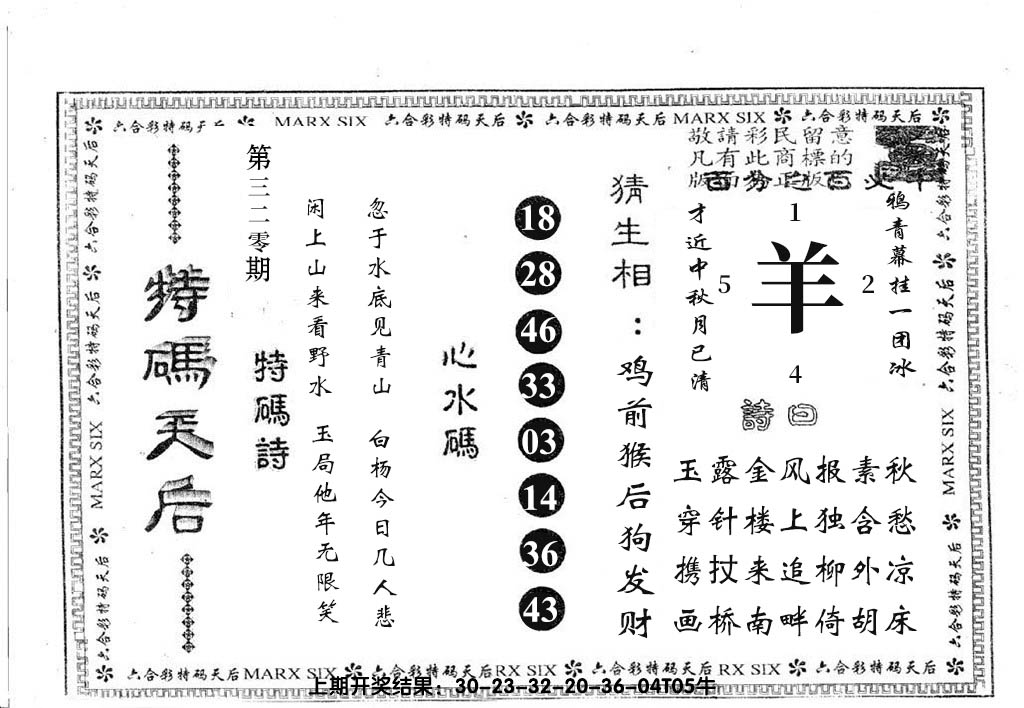 六合彩特码天后 MARX SIX 六合彩特码天后 六合彩特码天后 MARX SIX 六合彩特码天后
敬請彩民留意
凡有此商標的
版面為正版
鴉青幕挂一团冰
才近中秋月已清
1
5
羊
2
4
詩曰
玉露金风报素秋
穿针楼上独含愁
携扙来追柳外凉
画桥南畔倚胡床
猜生相：鸡前猴后狗发财
18
28
46
33
03
14
36
43
心水碼
忽于水底见青山 白杨今日几人悲
闲上山来看野水 玉局他年无限笑
第三二零期
特碼詩
特碼天后
六合彩特码天后 MARX SIX 六合彩特码天后
六合彩特码天后 六合彩特码天后 MARX SIX 六合彩特码天后
六合彩特码天后 MARX SIX 六合彩特码天后RX SIX 六合彩特码天后 RX SIX 六合彩特码天后
上期开奖结果：30-23-32-20-36-04T05牛